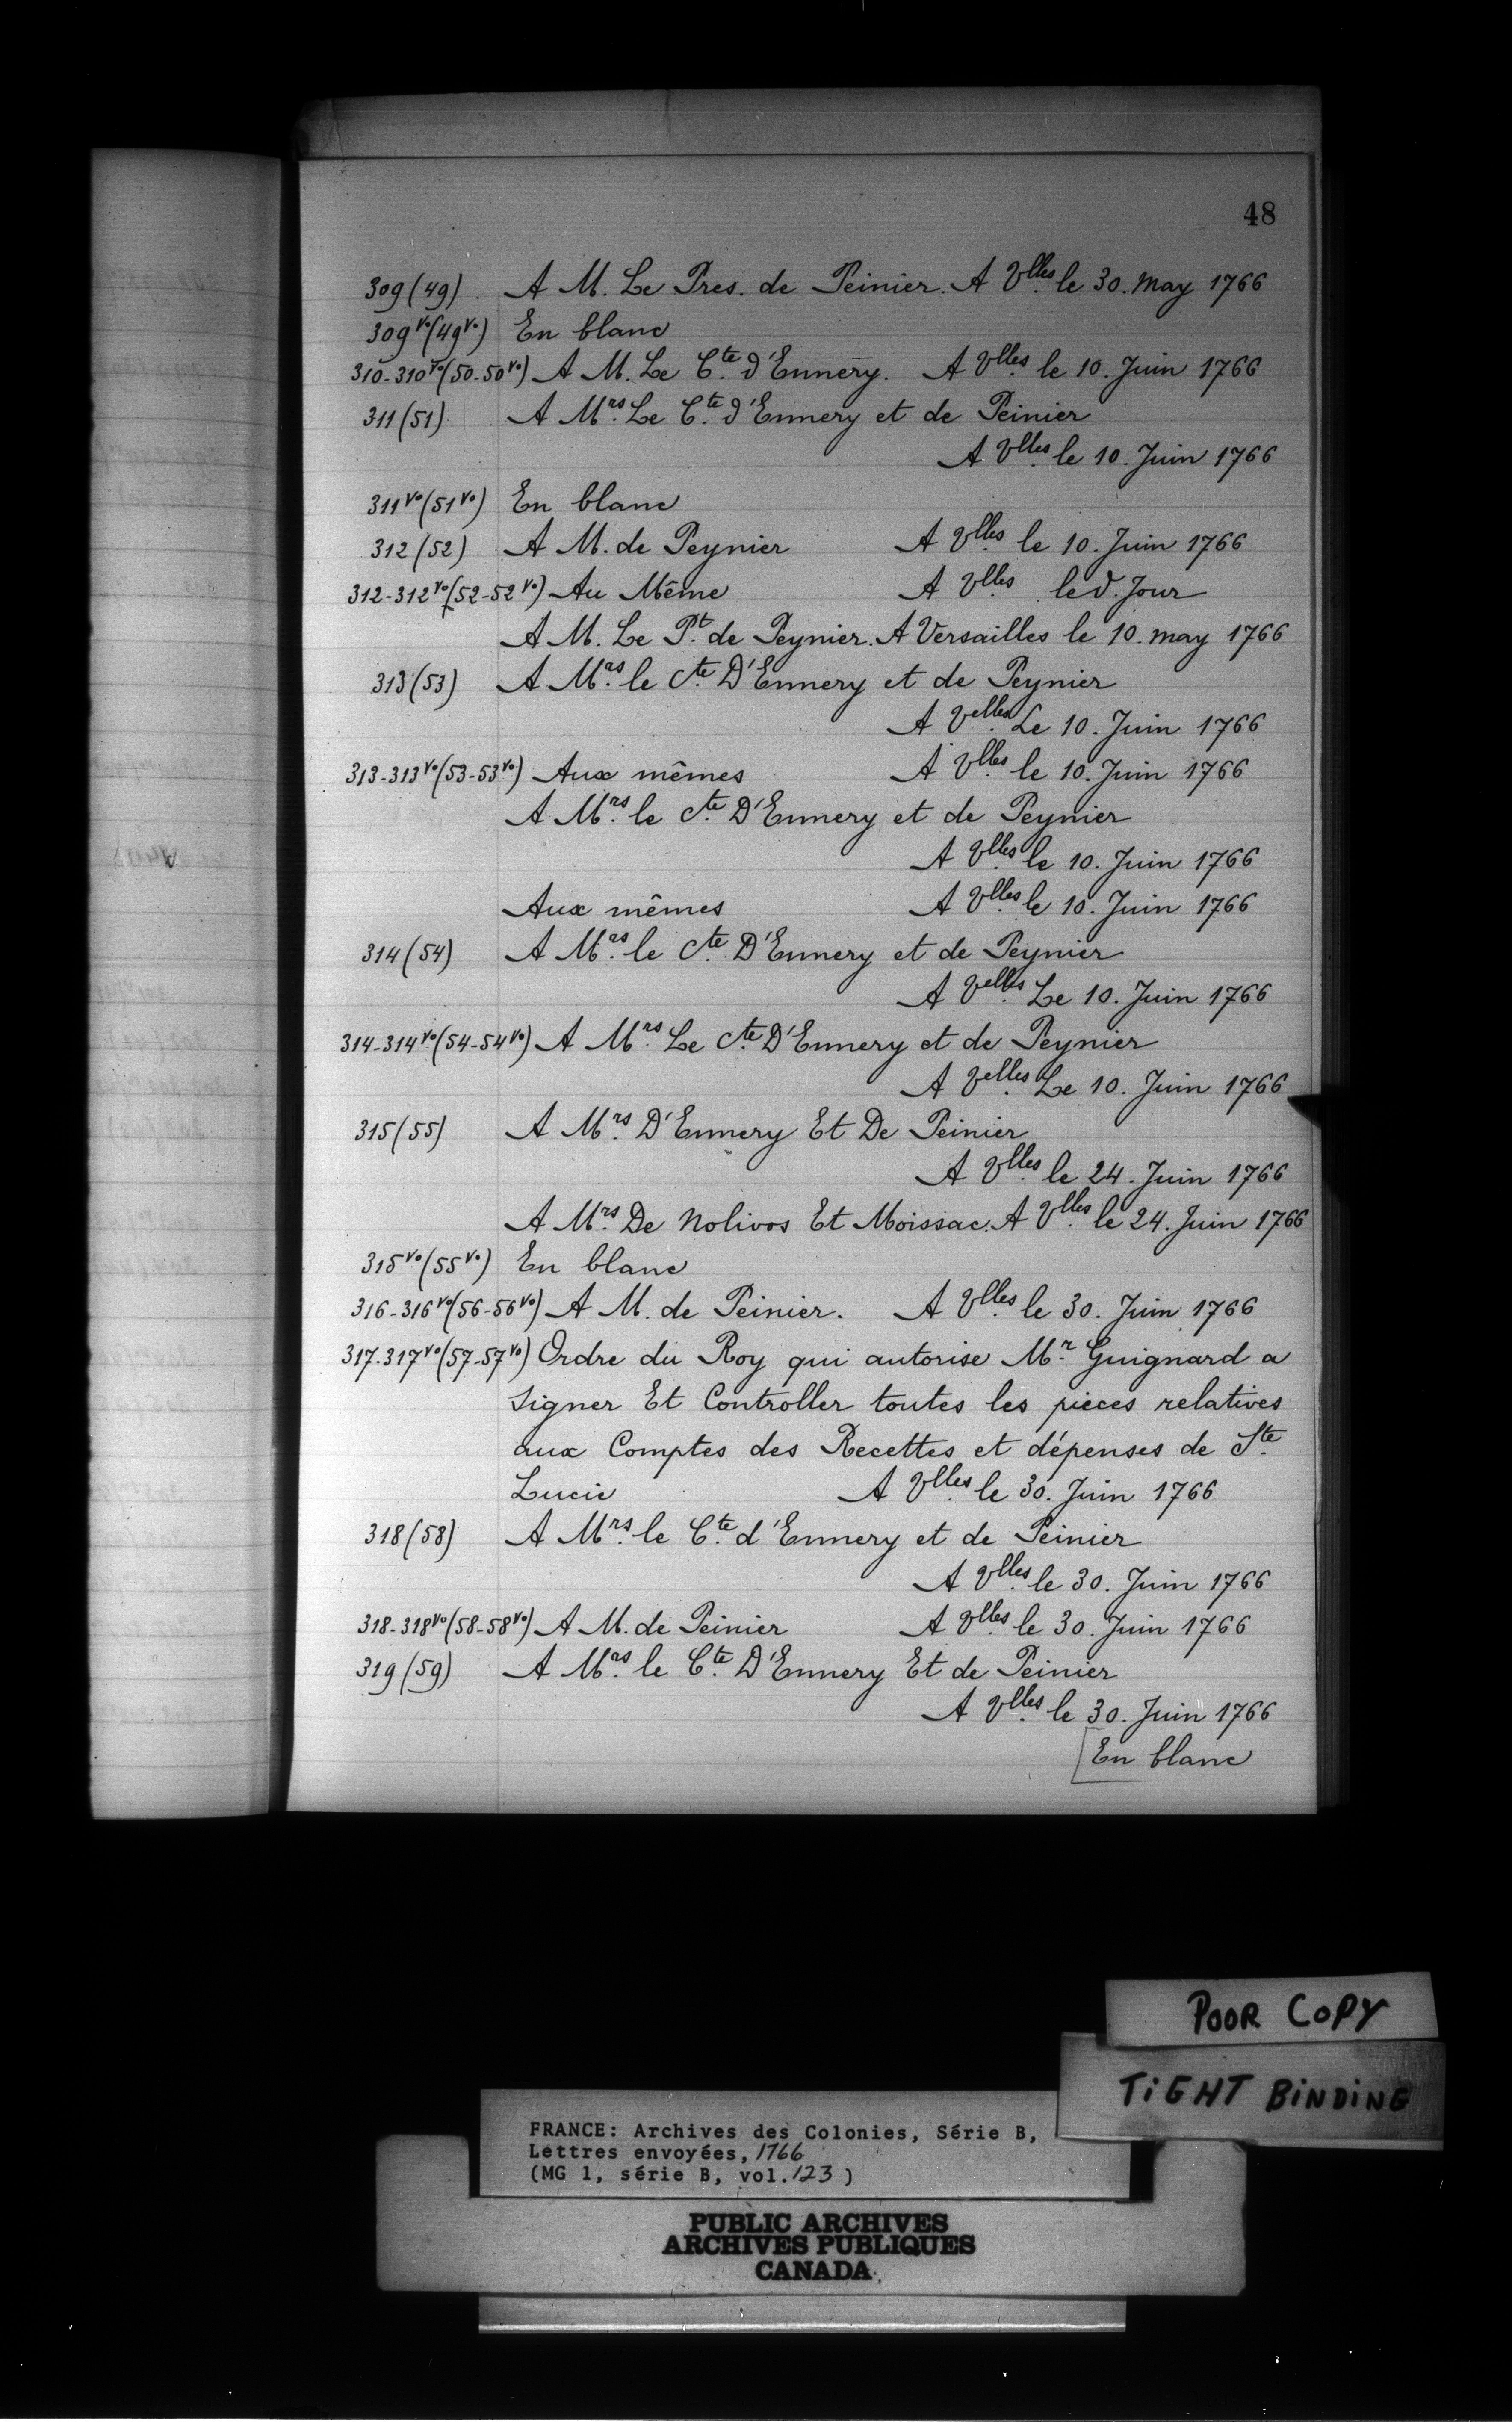 48
309 (49) A M. Le Pres. de Peinier. A Vlles le 30. May 1766
309 vo (49 vo) En blanc
310-310 vo (50-50 vo) A M. Le Cte d'Ennery. A Vlles le 10. Juin 1766
311 (51) A Mrs. Le Cte d'Ennery et de Peinier
A Vlles le 10. Juin 1766
311 vo (51 vo) En blanc
312 (52) A M. de Peynier A Vlles le 10. Juin 1766
312-312 vo (52-52 vo) Au Même A Vlles le d. Jour
A M. Le Pt. de Peynier. A Versailles le 10. may 1766
313 (53) A Mrs. le Cte D'Ennery et de Peynier
A Velles Le 10. Juin 1766
313-313 vo (53-53 vo) Aux mêmes A Vlles le 10. Juin 1766
A Mrs. le Cte D'Ennery et de Peynier
A Vlles le 10. Juin 1766
Aux mêmes A Vlles le 10. Juin 1766
314 (54) A Mrs. le Cte D'Ennery et de Peynier
A Velles Le 10. Juin 1766
314-314 vo (54-54 vo) A Mrs. Le Cte D'Ennery et de Peynier
A Velles Le 10. Juin 1766
315 (55) A Mrs. D'Ennery Et De Peinier
A Vlles le 24. Juin 1766
A Mrs. De Nolivos Et Moissac. A Vlles le 24. Juin 1766
315 vo (55 vo) En blanc
316-316 vo (56-56 vo) A M. de Peinier. A Vlles le 30. Juin 1766
317-317 vo (57-57 vo) Ordre du Roy qui autorise Mr. Guignard a
Signer Et Controller toutes les pièces relatives
aux Comptes des Recettes et dépenses de Ste.
Lucie A Vlles le 30. Juin 1766
318 (58) A Mrs. le Cte d'Ennery et de Peinier
A Vlles le 30. Juin 1766
318-318 vo (58-58 vo) A M. de Peinier A Vlles le 30. Juin 1766
319 (59) A Mrs. le Cte D'Ennery Et de Peinier
A Vlles le 30. Juin 1766
[En blanc
POOR COPY
TIGHT BINDING
FRANCE: Archives des Colonies, Série B,
Lettres envoyées, 1766
(MG 1, série B, vol. 123 )
PUBLIC ARCHIVES
ARCHIVES PUBLIQUES
CANADA